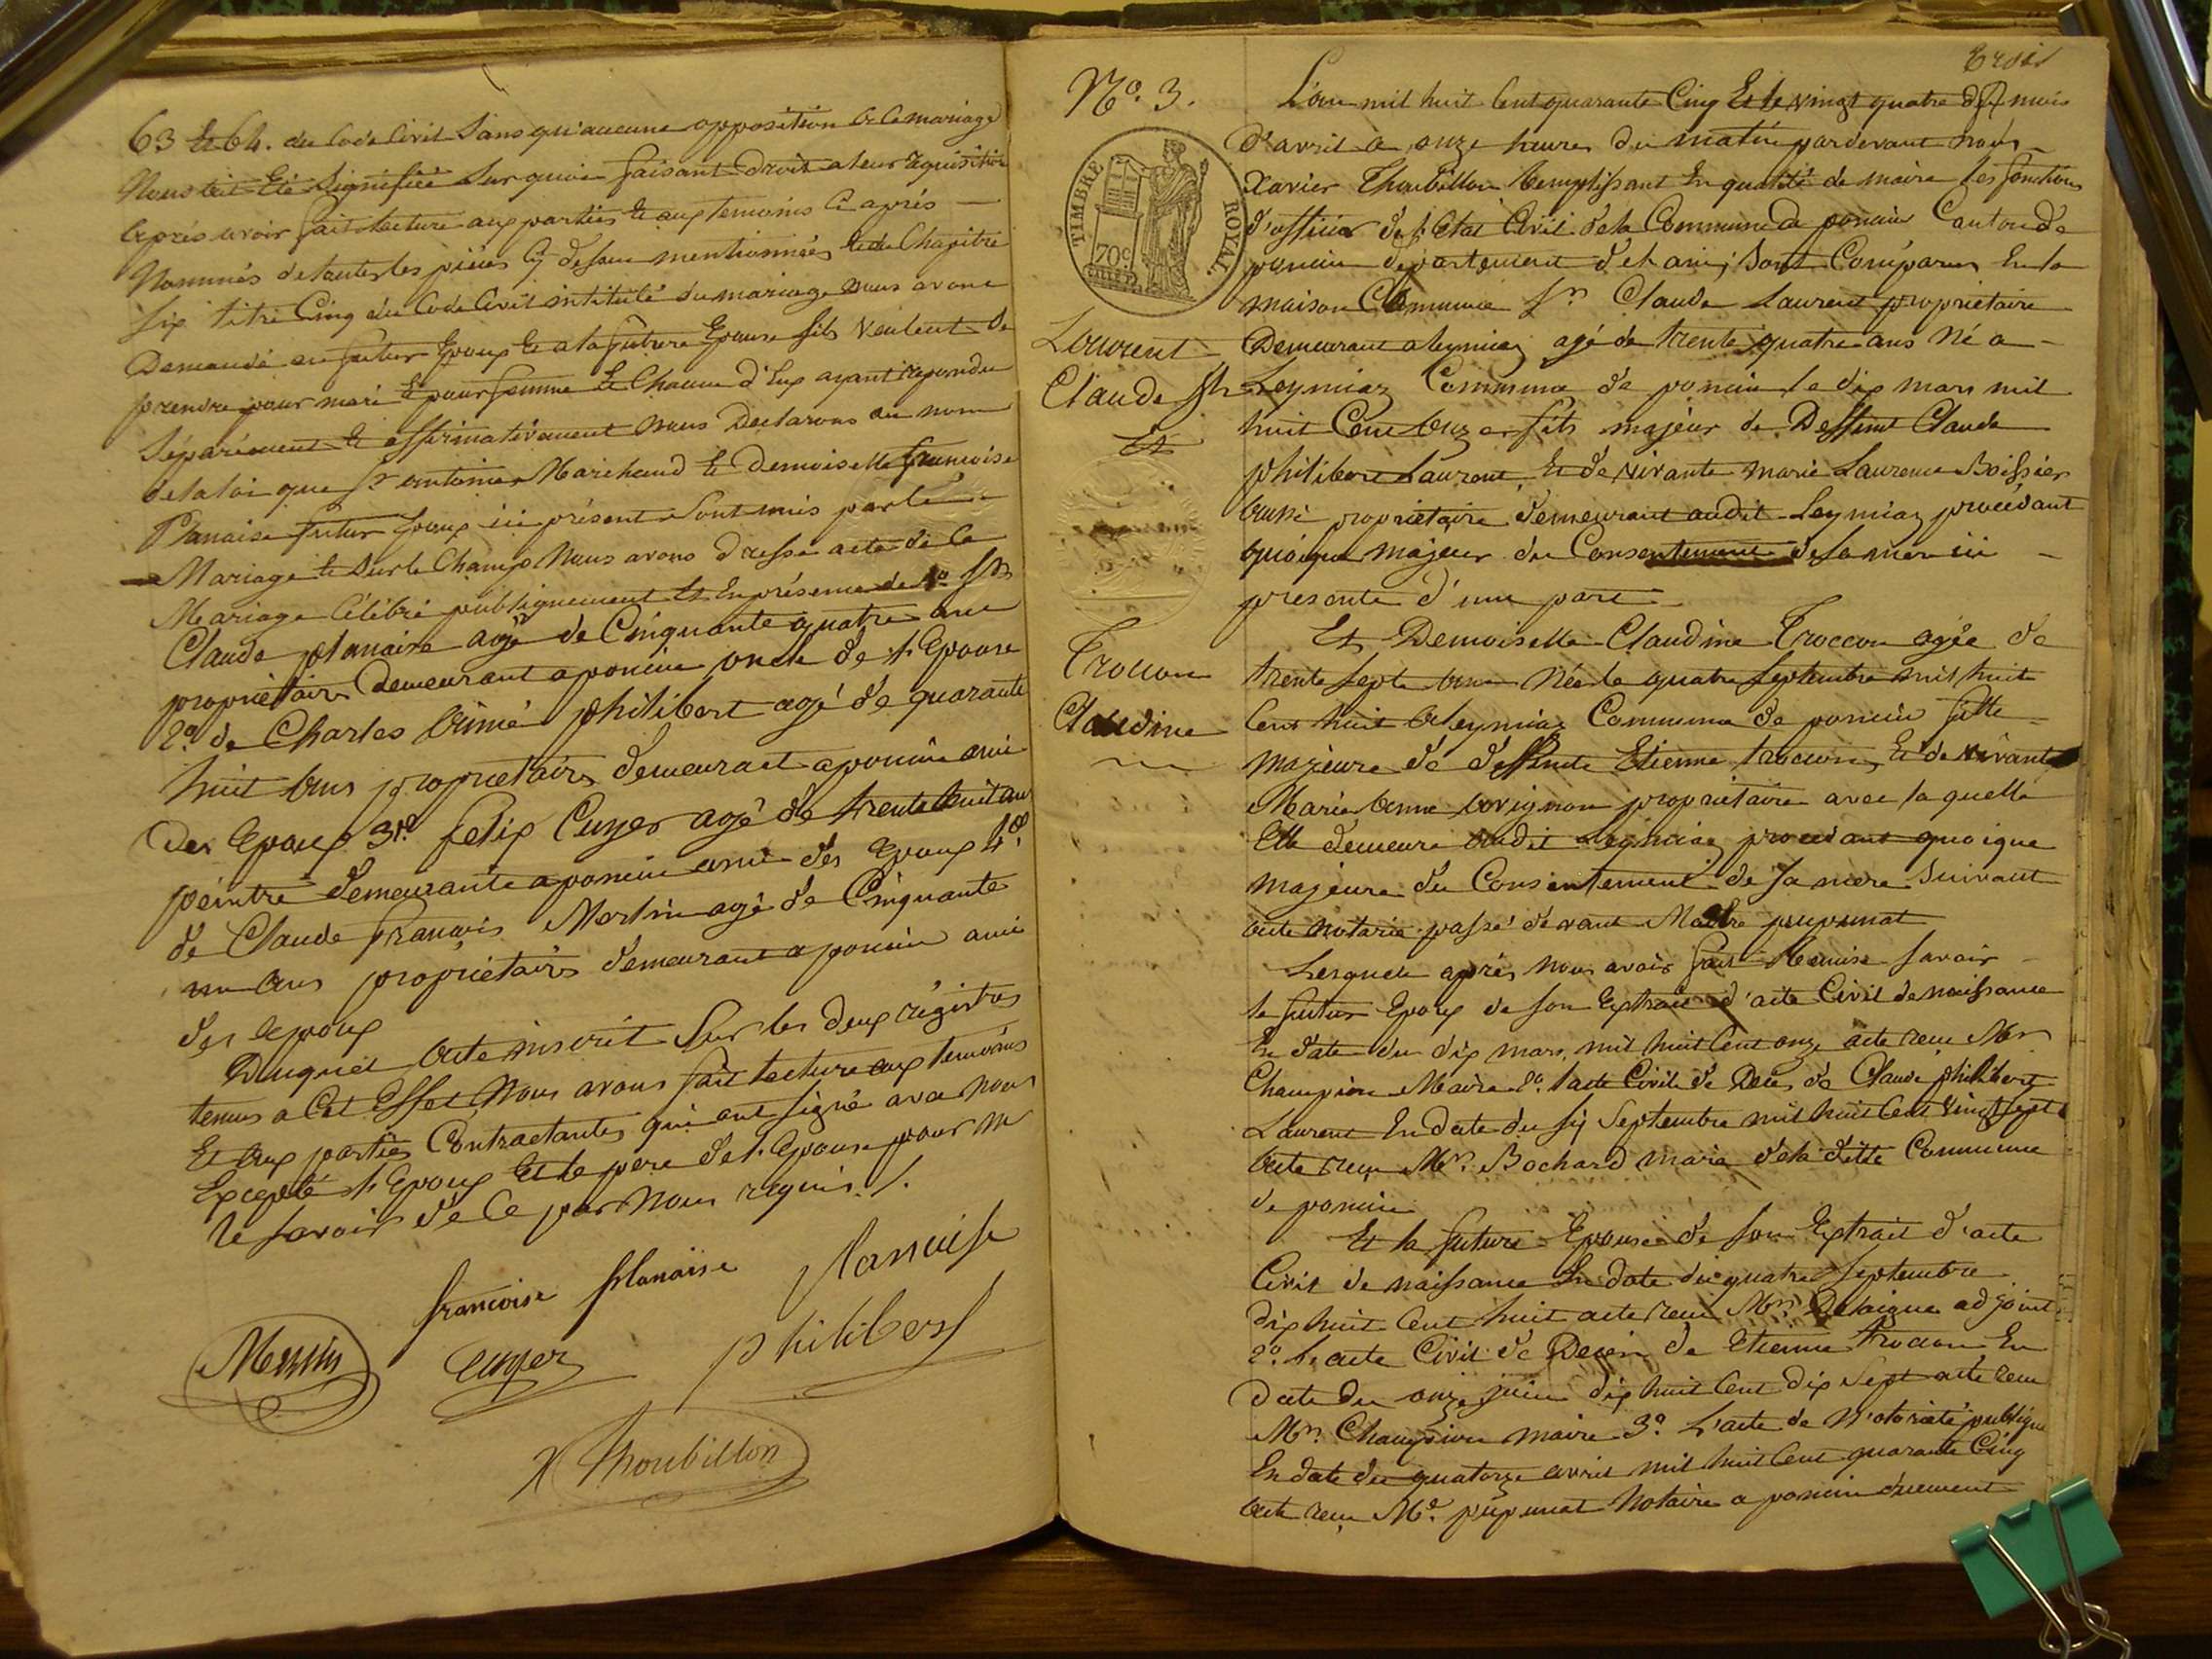 63 et 64. du Code Civil sans qu'aucune opposition a ce mariage
Nous ait été signifiée sur quoi faisant droit a leur requisition
après avoir fait lecture aux parties et aux temoins ci après
Nommés de toutes les pièces cy dessus mentionnées et du Chapitre
six titre Cinq du Code Civil intitulé du mariage nous avons
Demandé au futur Epoux et a la future Epouse s'ils veulent se
prendre pour mari et pour femme et Chacun d'Eux ayant repondu
Séparément et affirmativement nous Declarons au nom
de la loi que Sr antoine Marichand et Demoiselle françoise
Planaise futur Epoux ici présent sont unis par le
Mariage et sur le Champ Nous avons dressé acte de Ce
Mariage Célébré publiquement Et En présence de 1o Sr
Claude planaise agé de Cinquante quatre ans
propriétaire demeurant a poncin oncle de l'Epouse
2o. de Charles aimé philibert agé de quarante
huit ans propriétaire demeurant a poncin ami
des Epoux 3o. felix Cuyer agé de trente huit ans
peintre demeurante a poncin ami des Epoux 4o.
de Claude françois Merlin agé de Cinquante
un ans propriétaire demeurant a poncin ami
des epoux
Duquel acte inscrit sur les deux régistres
tenus a Cet Effet Nous avons fait lecture aux temoins
Et aux parties Contractantes qui ont signé avec nous
Excepté l'Epoux Et le pere de l'Epouse pour ne
le savoir de Ce par Nous requis ./.
francoise planaise
planaise
Merlin
Cuyer
philibert
X Thoubillon
Trois
No. 3.
TIMBRE ROYAL
70c
Laurent
Claude Sr
Et
Troccon
Claudine
L'an mil huit Cent quarante Cinq Et le vingt quatre du mois
D'avril a onze heures du matin pardevant nous
Xavier Thoubillon Remplissant En qualité de maire les fonctions
d'officier de l'Etat Civil de la Commune de poncin Canton de
poncin département de l'ain, sont Comparus En la
maison Commune Sr Claude Laurent propriétaire
Demeurant a leymiaz agé de trente quatre ans Né a
Leymiaz Commune de poncin le dix mars mil
huit Cent onze fils majeur de Deffunt Claude
philibert Laurent, Et de vivante marie Laurence Boissier
aussi propriétaire demeurant audit Leymiaz procédant
quoique majeur du Consentement de sa mere ici
presente d'une part
Et Demoiselle Claudine Troccon agée de
trente sept ans Née le quatre septembre mil huit
Cent huit a leymiaz Commune de poncin fille
majeure de deffunte Etienne troccon, Et de vivante
Marie anne Savignon propriétaire avec laquelle
Elle demeure audit Leymiaz procédant quoique
majeure du Consentement de sa mere suivant
acte notarié passé devant Maitre pupunat
Lesquels après nous avoir fait Remise savoir
le futur Epoux de son Extrait d'acte Civil de naissance
En date du dix mars mil huit Cent onze acte reçu Mr
Champion Maire 2o. l'acte Civil de Décès de Claude philibert
Laurent En date du six Septembre mil huit Cent vingt sept
acte reçu Mr. Bochard maire de la ditte Commune
de poncin
Et la future Epouse de son Extrait d'acte
Civil de naissance En date du quatre septembre
dix huit Cent huit acte reçu Mr. Delaigue adjoint
2o. L'acte Civil de Decès de Etienne Troccon En
date du onze juin dix huit Cent dix Sept acte reçu
Mr. Champion maire 3o. L'acte de Notoriété publique
En date du quatorze avril mil huit Cent quarante Cinq
acte reçu Me. pupunat Notaire a poncin duement